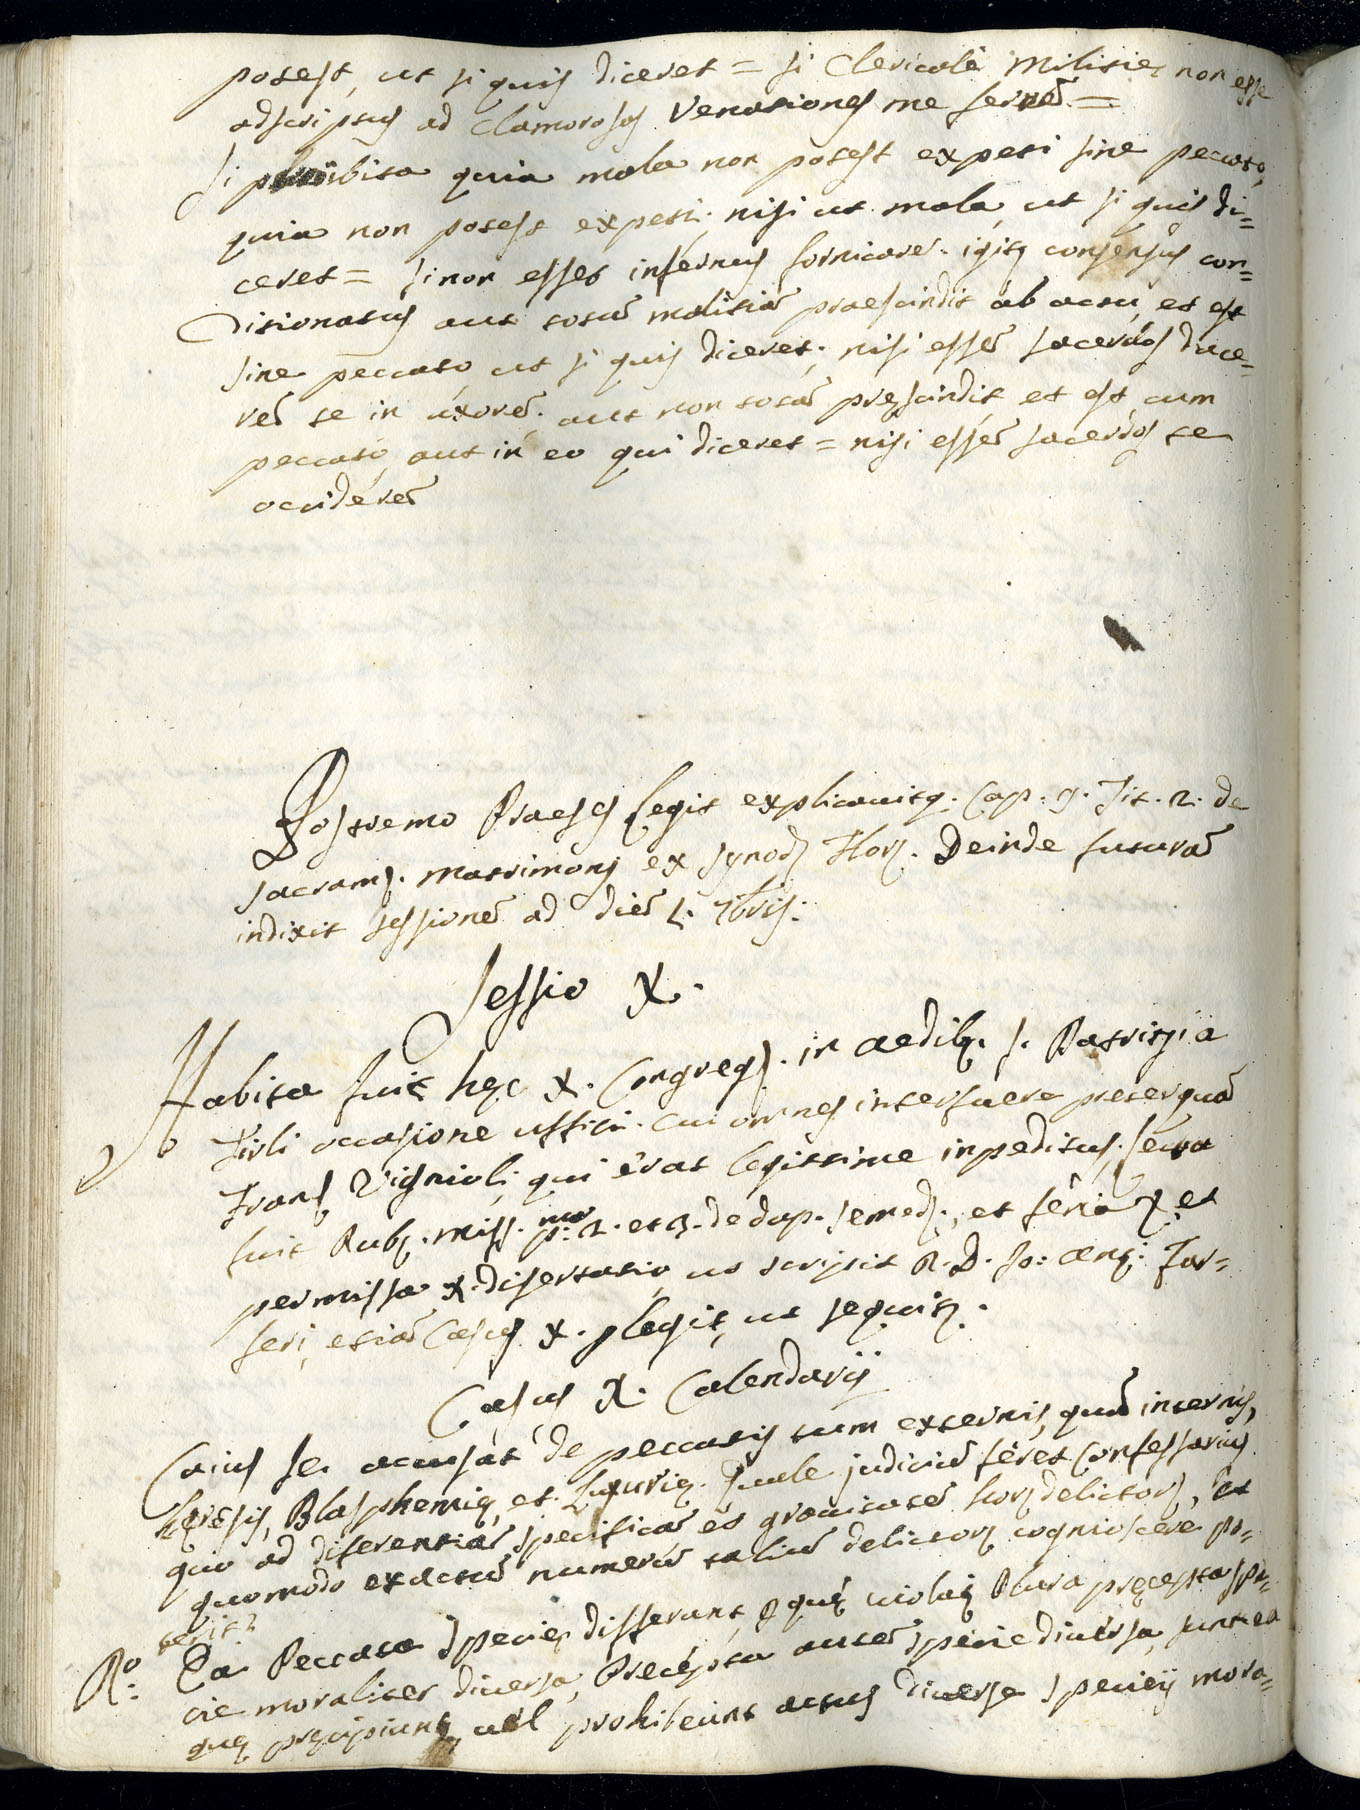 potest, ut si quis diceret = si Clericalè Militiè non esse
adscriptus ad Clamorosas Venationes me ferrē =
si phibita quia mala non potest expeti sine peccato,
quia non potest expeti nisi ut mala, ut si quis di=
ceret = si non esset infernus fornicarer. igitr consensus con=
ditionatus aut totam malitiā praescindit ab actu, et est
sine peccato, ut si quis diceret; nisi essē sacerdos duce=
rē te in uxorē. aut non totā prescindit et est cum
peccato, aut in eo qui diceret = nisi essē sacerdos te
occiderē
Postremo Praeses legit explicavitq. Cap. 9. Tit. 2. de
sacramᵗ. matrimonij ex synodᵒ Flor. Deinde futurā
indixit sessionē ad diē 7bris.
Sessio X.
Habita fuit hęc X. Congregᵒ. in aedibᵍ. S. Patritij à
Tirli occasione uffitij. cui omnes interfuere preterquā
Francᵒ Vignioli, qui erat legittime inpeditus. lecta
fuit Rubᵃ. miss. pᵃ. 2. et 3. de dup. semedᵘ., et feria X. et
permissa X. disertatio, ut scripsit R. D. Jo: Antᵘ: For=
seri, etiā Casus X. plegit, ut sequitr.
Casus X. Calendarij
Caius se accusat de peccatis tum externis, quā internis,
heresis, Blasphemię, et Luxurię. Quale judiciū feret Confessarius
quo ad diferentiā specificā et gravitatē horᵘ delictorᵘ, et
quomodo exactū numerū taliū delictorᵘ cognioscere po=
terit?
Rᵒ: Ea Peccata specie differunt, p quę violātᵘ Plura pręcepta spe=
cie moraliter diversa, Precepta autē specie diversa, sunt ea
quę pręcipiunt, vel prohibeunt actus diverse speciei mora=